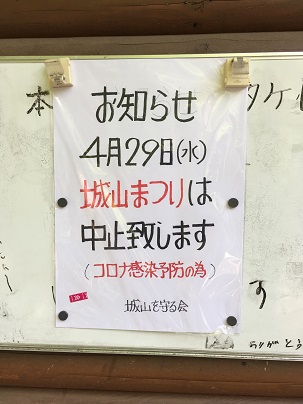 お知らせ
4月29日(水)
城山まつりは
中止致します
(コロナ感染予防の為)
城山を守る会
本
タケ
す
ありがとう